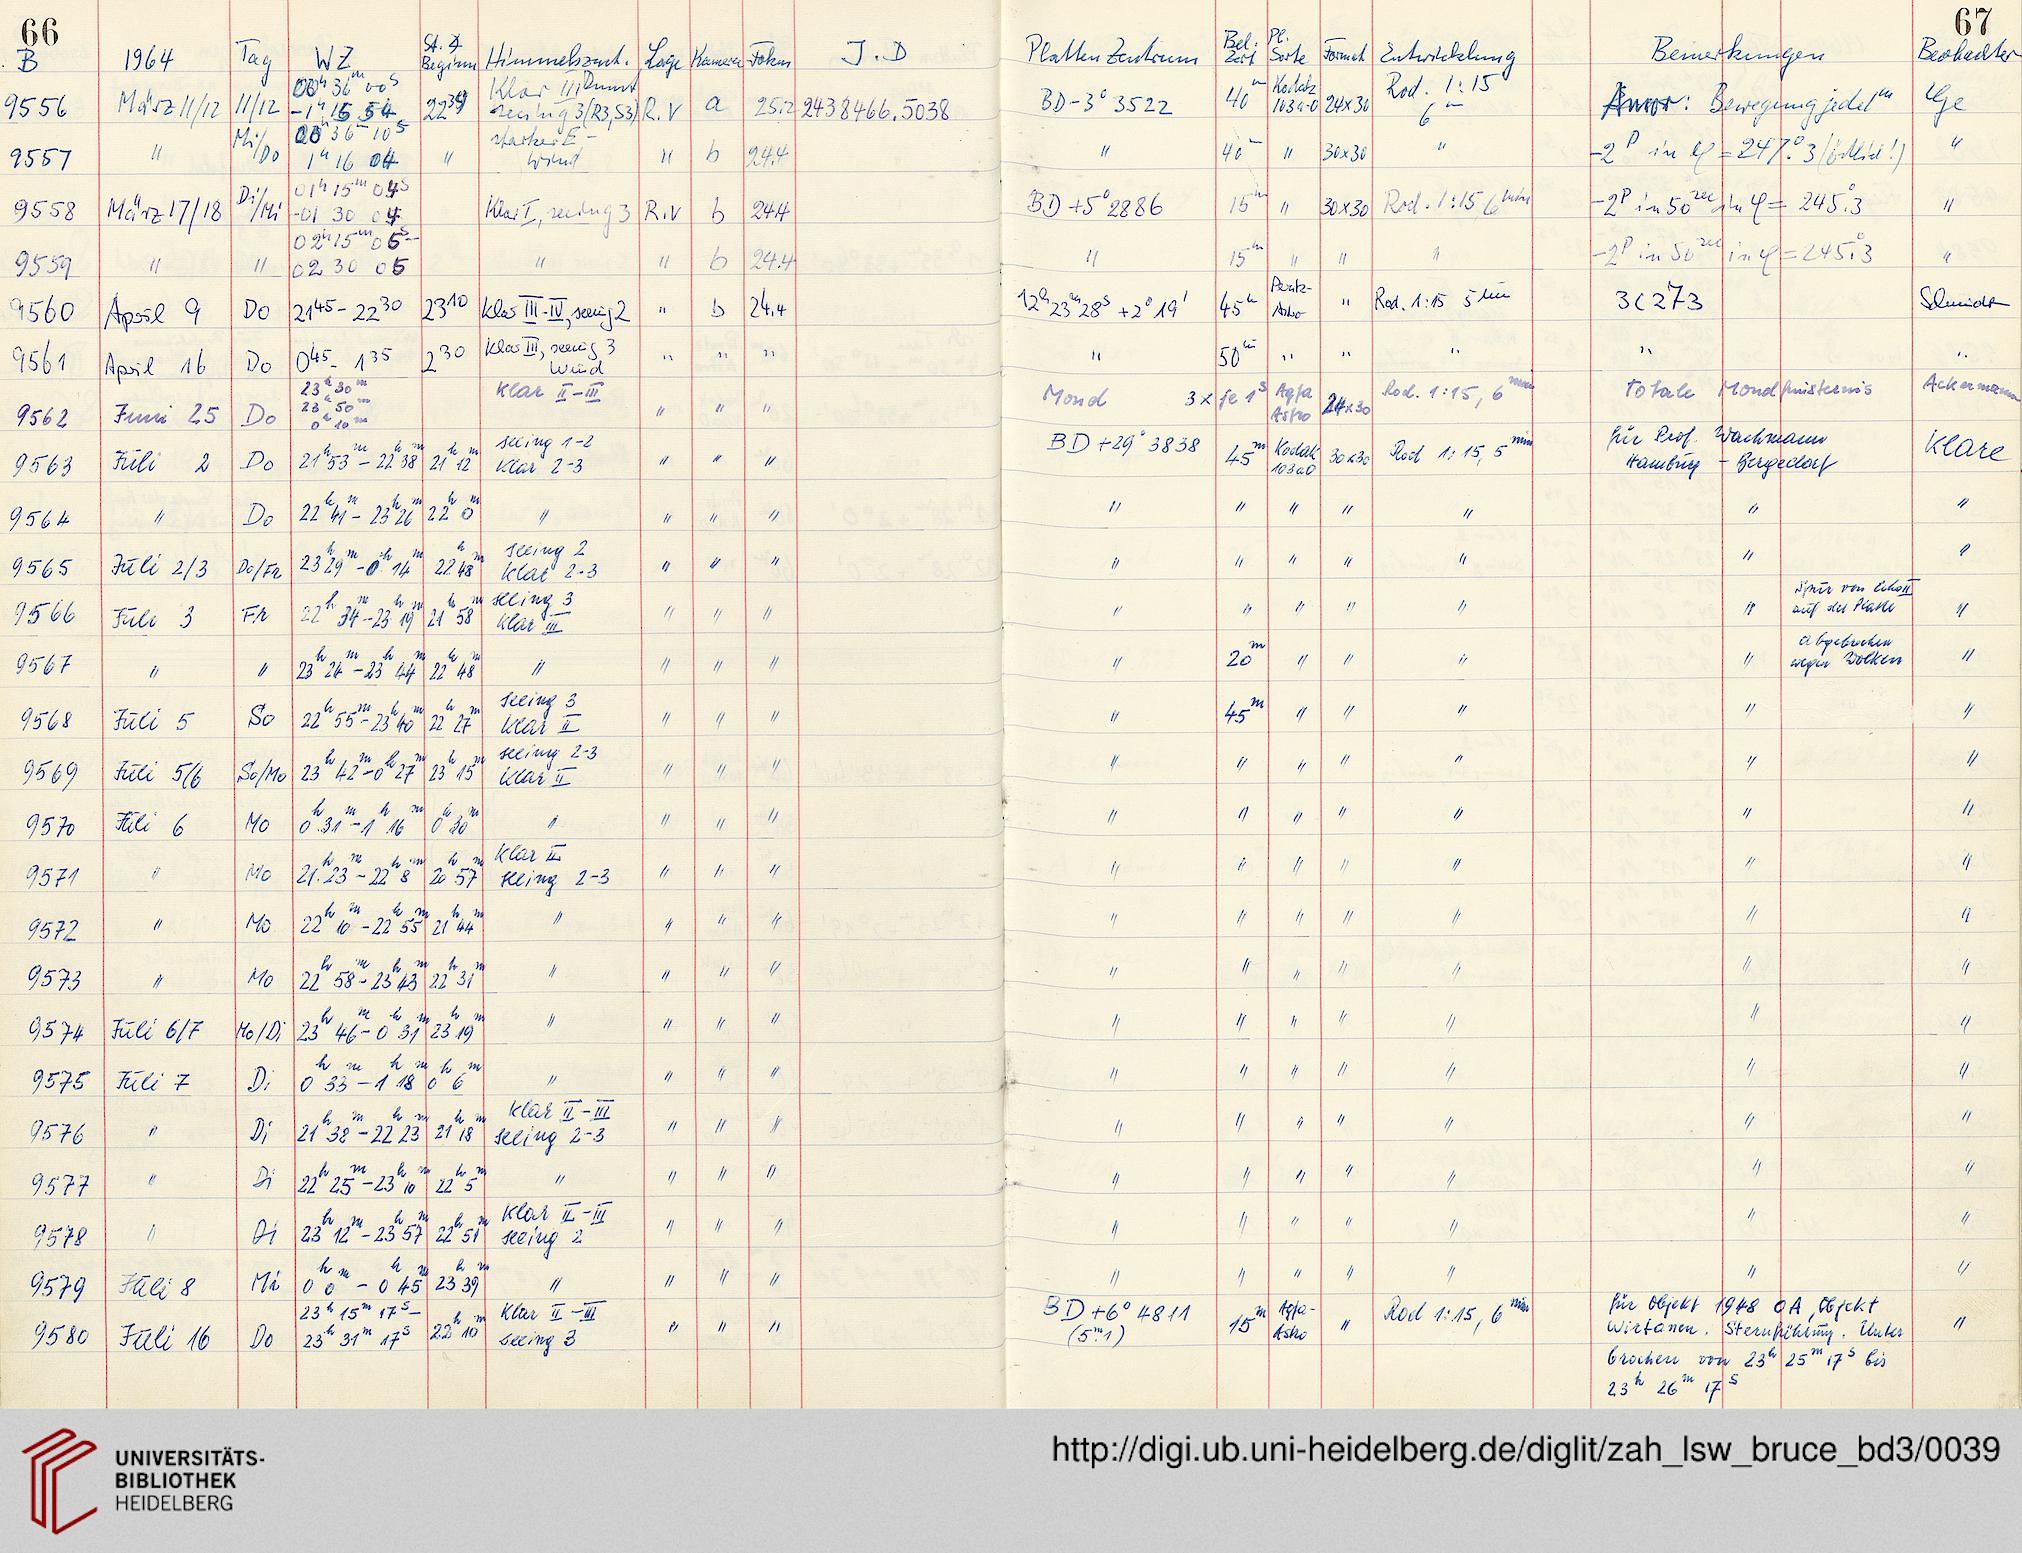 66 67
B 1964 Tag WZ St. ∢ Beginn Himmelszust. Lage Kamera Fokus J.D Plattenzentrum Bel. Zeit Pl. Sorte Format Entwicklung Bemerkungen Beobachter
9556 März 11/12 11/12 00h 36m 00s -1h 16 54 22 39 Klar III Dunst seeing 3 (R3, S3) R.V a 25.2 2438466.5038 BD -3° 3522 40m Kodak 103a-O 24x30 Rod. 1:15 6m : Bewegung jedes m
9557 " Mi/Do 00 36m 10s 1h 16 04 " starker E- Wind " b 24.4 " 40m " 30x30 " -2p in φ = 247.°3 "
9558 März 17/18 Di/Mi 01h 15m 04s -01 30 04 Klar I, seeing 3 R.V b 24.4 BD +5° 2886 15m " 30x30 Rod. 1:15, 6min -2p in 50sec in φ = 245.°3 "
9559 " " 02h 15m 05s- 02 30 05 " " b 24.4 " 15m " " " -2p in 50sec in φ = 245.°3 "
9560 April 9 Do 21 45 - 22 30 23 10 Klar III-IV, seeing 2 " b 24.4 12h 23m 28s +2° 19' 45m Perutz-Astro " Rod. 1:15 5min 3C273 Schmidt
9561 April 16 Do 0 45 - 1 35 2 30 Klar III, seeing 3 Wind " " " " 50m " " " " "
9562 Juni 25 Do 23h 30m 23h 50m 0h 10m Klar II-III " " " Mond 3x je 1s Agfa Astro 24x30 Rod. 1:15, 6min Totale Mondfinsternis Ackermann
9563 Juli 2 Do 21h 53m - 22h 38m 21h 12m seeing 1-2 Klar 2-3 " " " BD +29° 3838 45m Kodak 103aO 30x30 Rod 1:15, 5min für Prof. Wachmann Hamburg - Bergedorf Klare
9564 " Do 22h 41m - 23h 26m 22h 0m " " " " " " " " " " "
9565 Juli 2/3 Do/Fr 23h 29m - 0h 14m 22h 48m seeing 2 Klar 2-3 " " " " " " " " " "
9566 Juli 3 Fr 22h 34m - 23h 19m 21h 58m seeing 3 Klar III " " " " " " " " " Spur von Echo II auf der Platte "
9567 " " 23h 24m - 23h 44m 22h 48m " " " " " 20m " " " " abgebrochen wegen Wolken "
9568 Juli 5 So 22h 55m - 23h 40m 22h 27m seeing 3 Klar II " " " " 45m " " " " "
9569 Juli 5/6 So/Mo 23h 42m - 0h 27m 23h 15m seeing 2-3 Klar II " " " " " " " " " "
9570 Juli 6 Mo 0h 31m - 1h 16m 0h 30m " " " " " " " " " " "
9571 " Mo 21h 23m - 22h 8m 20h 57m Klar II seeing 2-3 " " " " " " " " " "
9572 " Mo 22h 10m - 22h 55m 21h 44m " " " " " " " " " " "
9573 " Mo 22h 58m - 23h 43m 22h 31m " " " " " " " " " " "
9574 Juli 6/7 Mo/Di 23h 46m - 0h 31m 23h 19m " " " " " " " " " " "
9575 Juli 7 Di 0h 33m - 1h 18m 0h 6m " " " " " " " " " " "
9576 " Di 21h 38m - 22h 23m 21h 18m Klar II-III seeing 2-3 " " " " " " " " " "
9577 " Di 22h 25m - 23h 10m 22h 5m " " " " " " " " " " "
9578 " Di 23h 12m - 23h 57m 22h 51m Klar II-III seeing 2 " " " " " " " " " "
9579 Juli 8 Mi 0h 0m - 0h 45m 23h 39m " " " " " " " " " " "
9580 Juli 16 Do 23h 15m 17s - 23h 31m 17s 22h 10m Klar II-III seeing 3 " " " BD +6° 4811 (5m.1) 15m Agfa-Astro " Rod 1:15, 6min für Objekt 1948 OA, Objekt Wirtanen. Sternführung. Unter "
brochen von 23h 25m 17s bis
23h 26m 17s
UNIVERSITÄTS-
BIBLIOTHEK
HEIDELBERG
http://digi.ub.uni-heidelberg.de/diglit/zah_lsw_bruce_bd3/0039